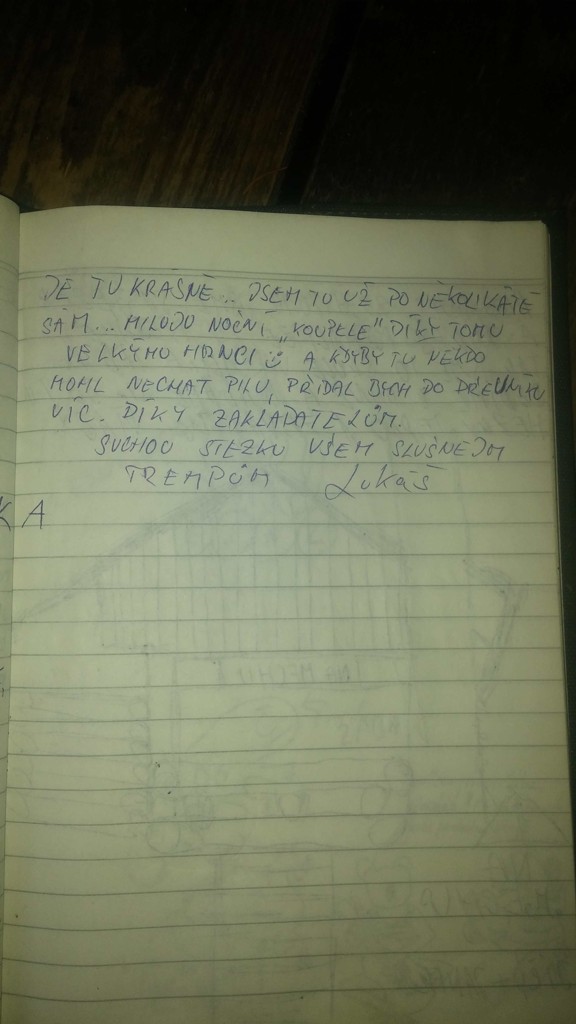 JE TU KRÁSNĚ... JSEM TU UŽ PO NĚKOLIKÁTÉ
SÁM... MILUJU NOČNÍ „KOUPELE" DÍKY TOMU
VELKÝMU HRNCI ☺ A KDYBY TU NĚKDO
MOHL NECHAT PILU, PŘIDAL BYCH DO DŘEVNÍKU
VÍC. DÍKY ZAKLADATELŮM.
SUCHOU STEZKU VŠEM SLUŠNEJM
TREMPŮM Lukáš
KA